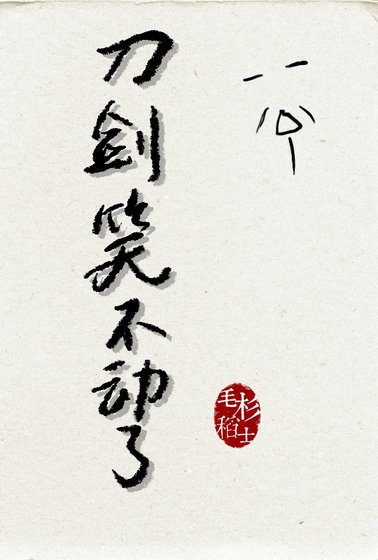 刀剑笑不动了
毛杉
稻士